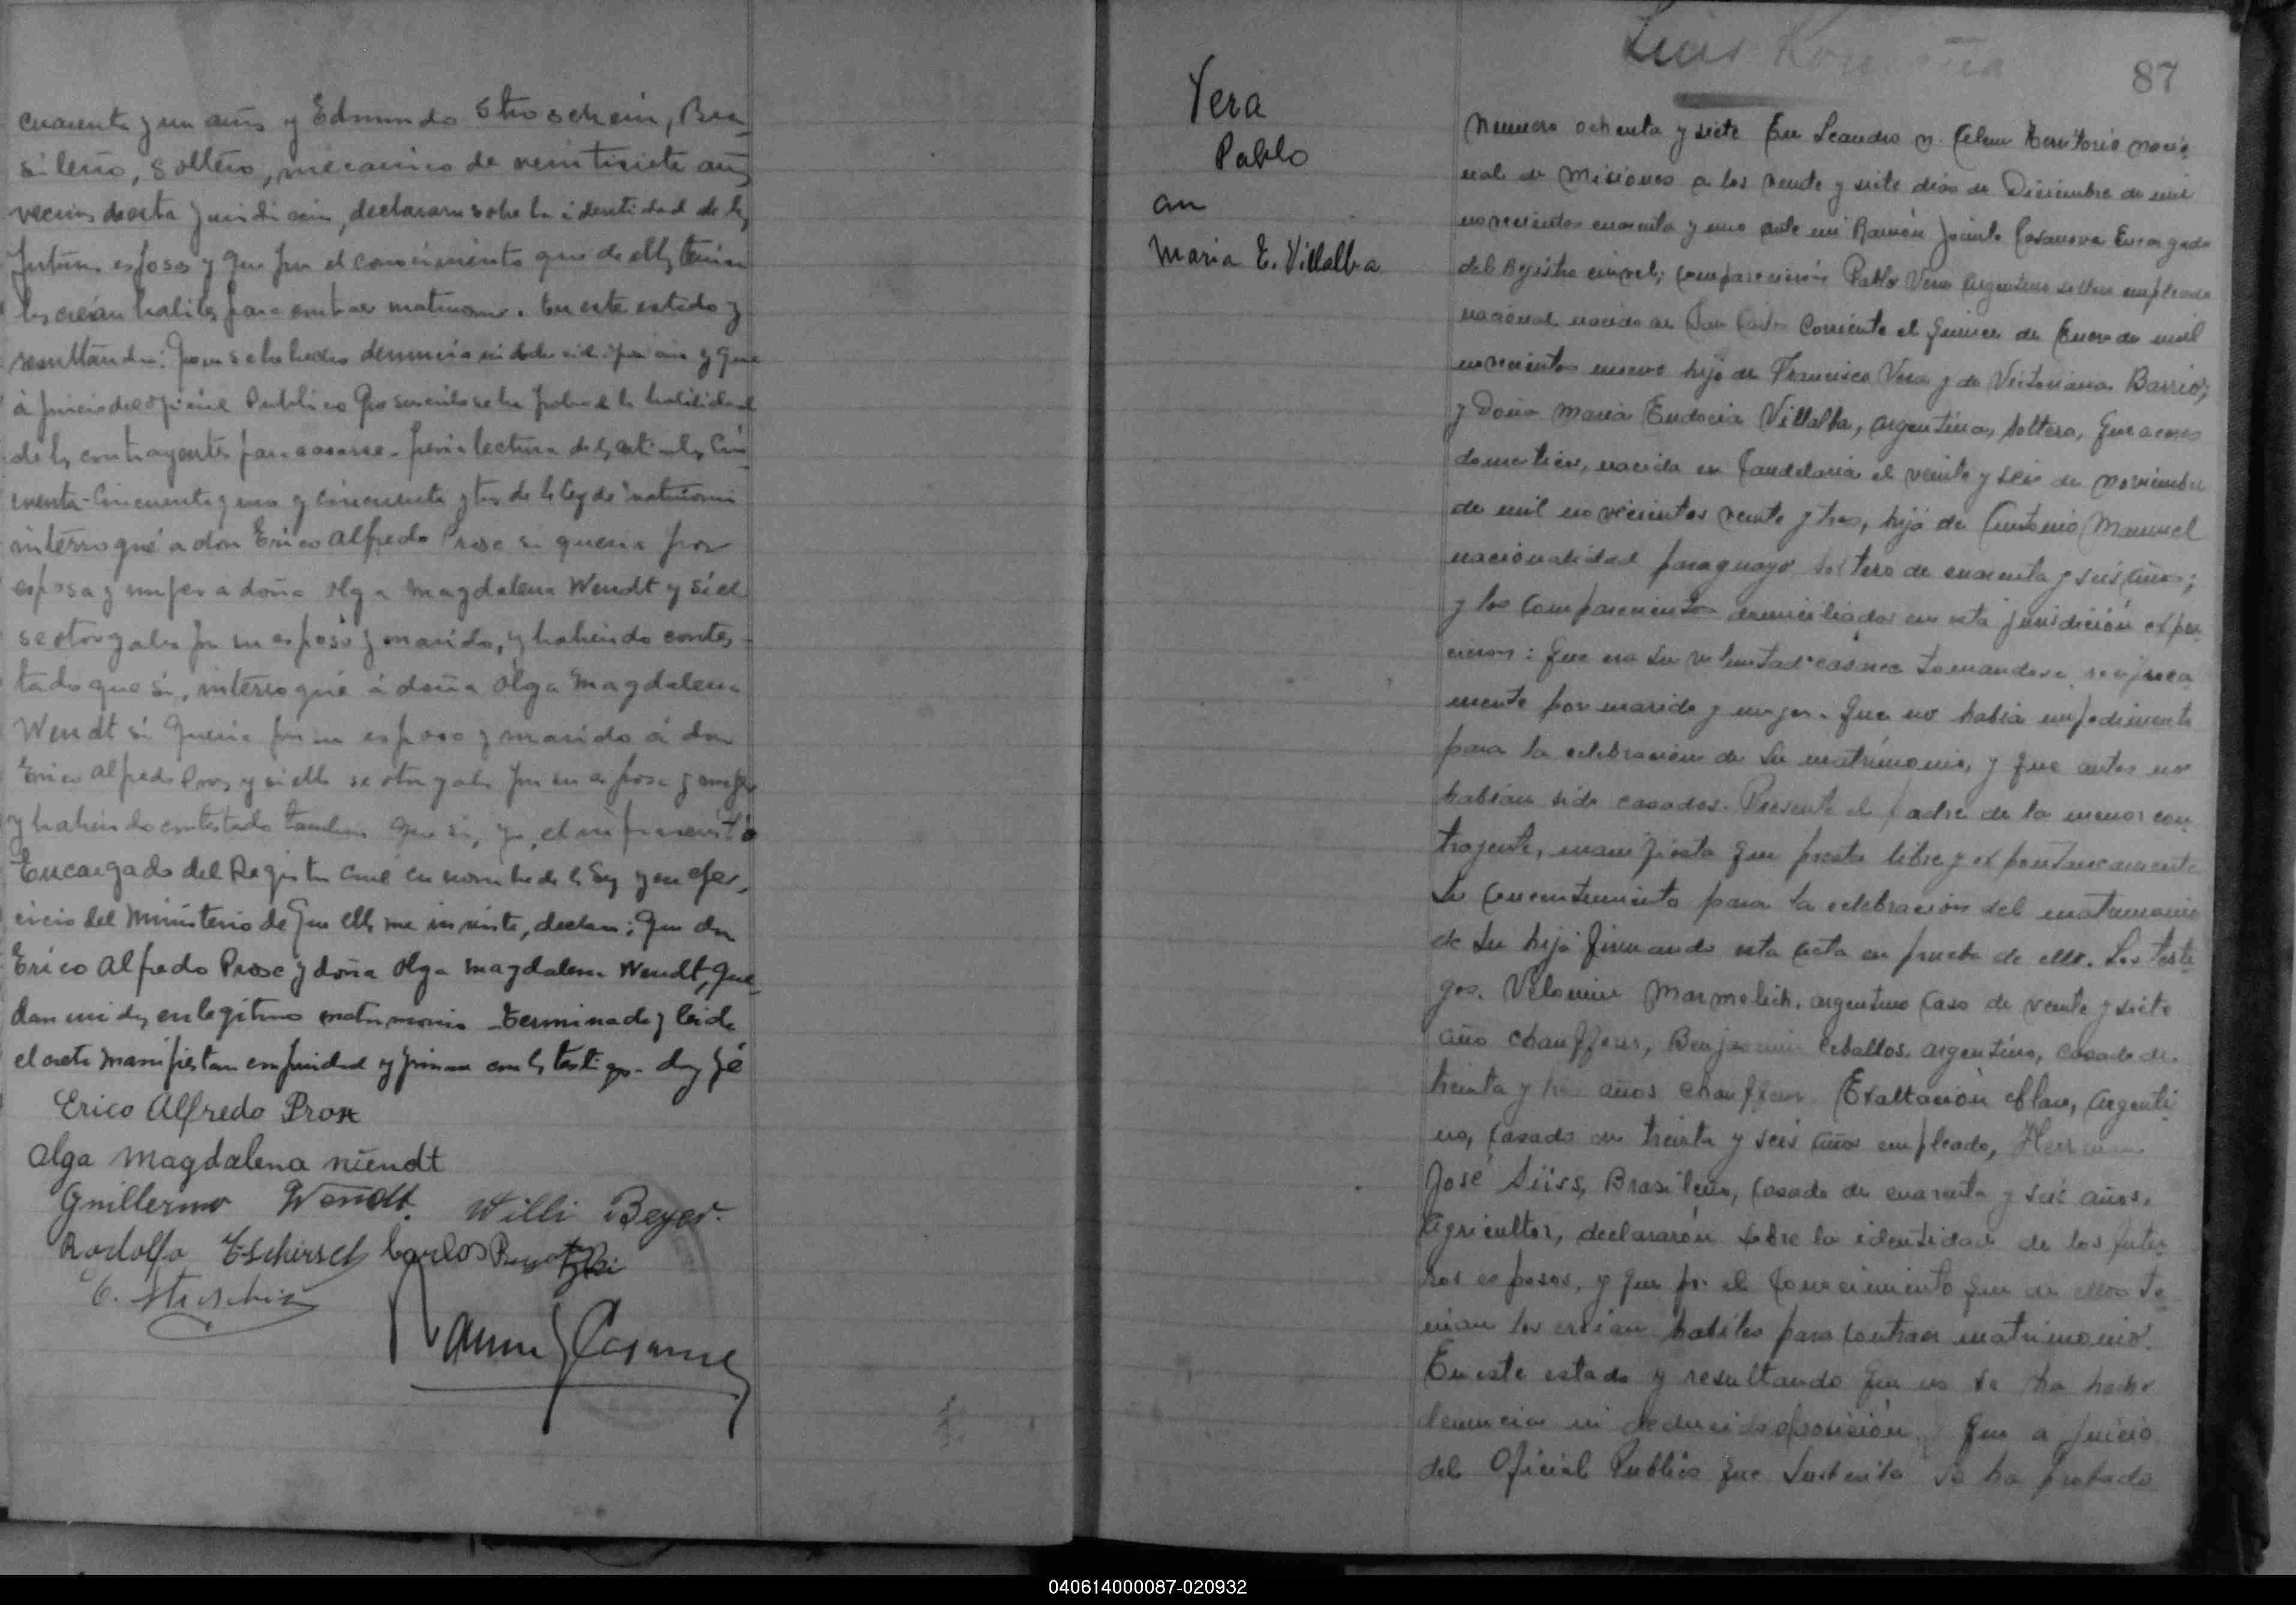 cuarenta y un años y Edmundo Stroschein, Bra-
sileño, soltero, mecanico de veintisiete años
vecinos de esta jurisdiccion, declararon sobre la identidad de los
futuros esposos y que por el conocimiento que de ellos tenian
los creian habiles para contraer matrimonio. En este estado y
resultando: que no se ha hecho denuncia ni deducido oposicion y que
á juicio del oficial Publico que suscribe se ha probado la habilidad
de los contrayentes para casarse - previa lectura de los articulos Cin-
cuenta - Cincuenta y uno y cincuenta y tres de la ley de matrimonio
interrogué a don Erico Alfredo Prose si queria por
esposa y mujer a doña Olga Magdalena Wendt y si él
se otorgaba por su esposo y marido, y habiendo contes-
tado que si, interrogué á doña Olga Magdalena
Wendt si queria por su esposo y marido á don
Erico Alfredo Pros y si ella se otorgaba por su esposa y mujer
y habiendo contestado tambien que si, yo, el infrascrito
Encargado del Registro Civil en nombre de la ley y en ejer-
cicio del Ministerio de que ella me inviste, declaro: Que don
Erico Alfredo Prose y doña Olga Magdalena Wendt, que-
dan unidos en legitimo matrimonio - Terminada y leida
el acta manifiestan conformidad y firman con los testigos - doy fé
Erico Alfredo Prose
Olga Magdalena Wendt
Guillermo Wendt. Willi Beyer.
Rodolfo Eschirsch Carlos
E. Stroschein
Ramon J Casanova
Luis
87
Vera
Pablo
an
Maria E. Villalba
Numero ochenta y siete En Leandro N. Alem Territorio nacio-
nal de Misiones a los veinte y siete dias de Diciembre de mil
novecientos cuarenta y uno ante mi Ramón Jacinto Casanova Encargado
del Registro civil; comparecieron Pablo Vera argentino soltero empleado
nacional nacido en San Carlos Corrientes el quince de Enero de mil
novecientos nueve hijo de Francisco Vera y de Victoriana Barrio;
y Doña Maria Eudocia Villalba, argentina, soltera, quehaceres
domesticos, nacida en Candelaria el veinte y seis de noviembre
de mil novecientos veinte y tres, hija de Antonio Manuel
nacionalidad paraguayo soltero de cuarenta y seis años;
y los comparecientes domiciliados en esta jurisdición expu-
cieron: Que era su voluntad casarce tomandose reciproca-
mente por marido y mujer. Que no habia impedimento
para la celebracion de su matrimonio, y que antes no
habian sido casados. Presente el padre de la menor con-
trayente, manifiesta que presta libre y expontaneamente
su consentimiento para la celebración del matrimonio
de su hija firmando esta acta en prueba de ello. Los testi-
gos. Marmelich, argentino Casado de veinte y siete
año chauffeur, Benjamin Ceballos argentino, casado de
treinta y tres años chauffeur Exaltación argenti-
no, casado de treinta y seis años empleado, Herman
José Süiss, Brasileño, casado de cuarenta y seis años,
Agricultor, declararón sobre la identidad de los futu-
ros esposos, y que por el conocimiento que de ellos te-
nian los creian habiles para contraer matrimonio.
En este estado y resultando que no se ha hecho
denuncia ni deducido oposición, y que a juicio
del Oficial Publico que suscribe se ha probado
040614000087-020932